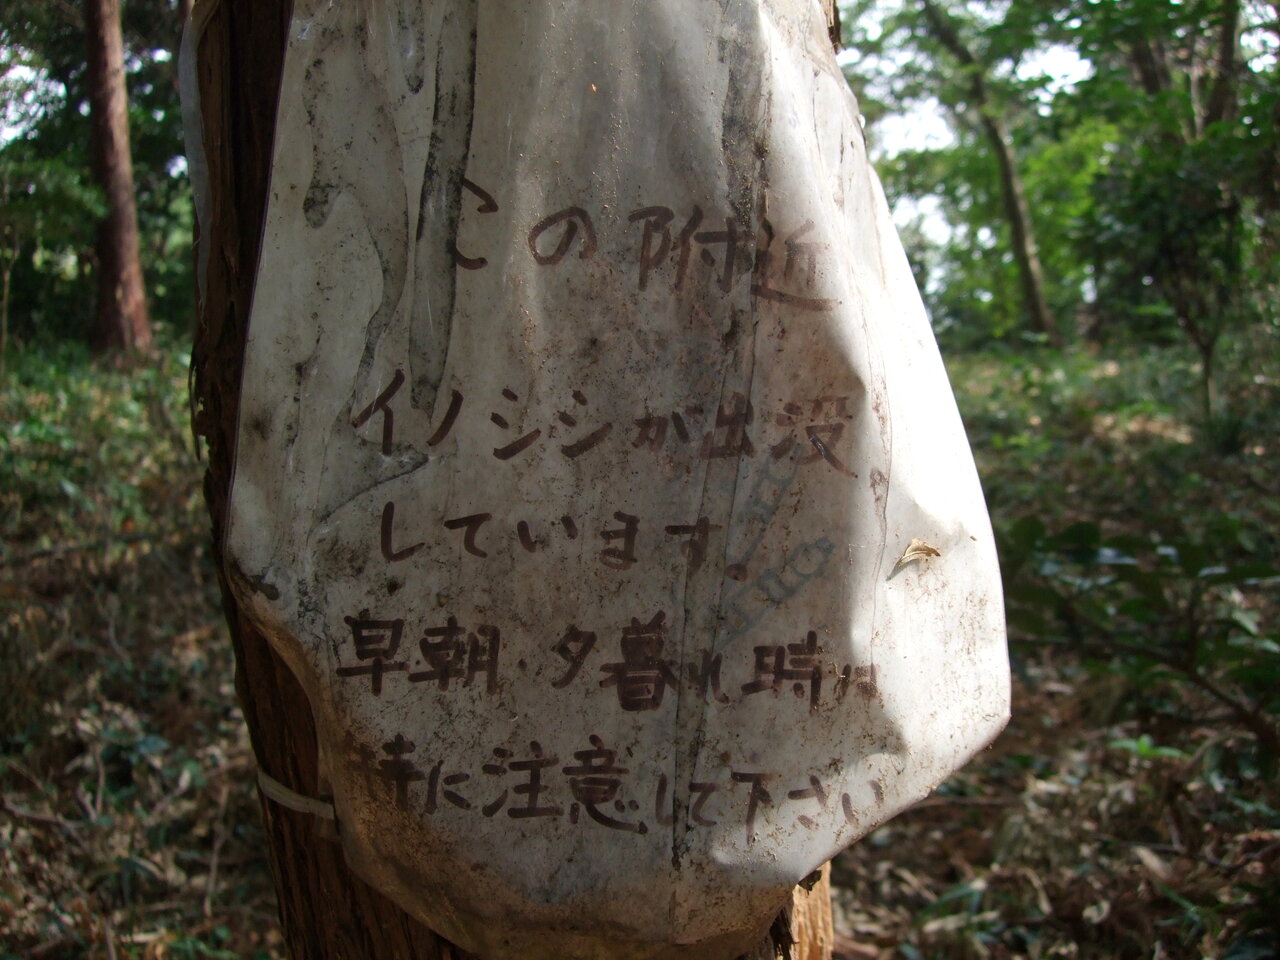 この附近
イノシシが出没
しています.
早朝・夕暮れ時は
特に注意して下さい